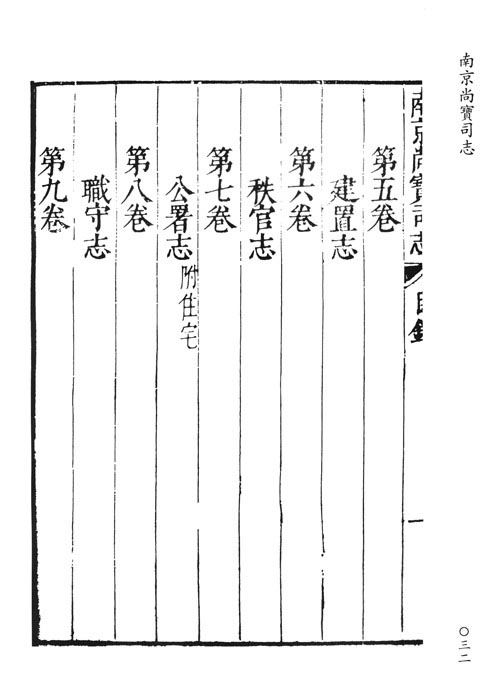 南京尚寶司志
南京尚寶司志 目錄 一
第五卷
建置志
第六卷
秩官志
第七卷
公署志 附住宅
第八卷
職守志
第九卷
〇三二